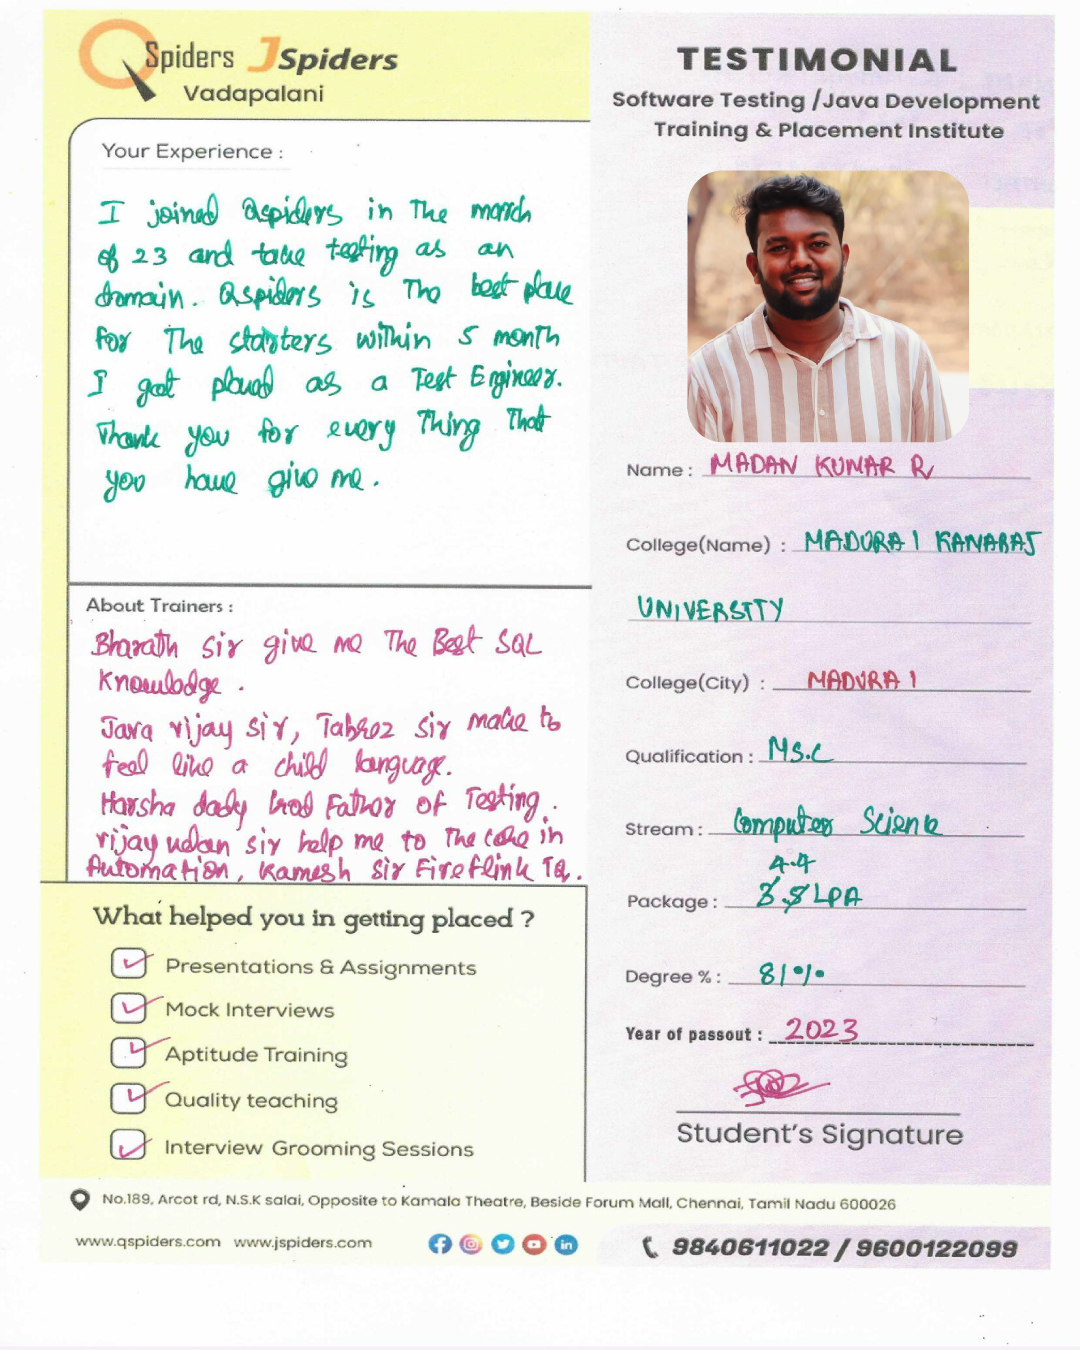 QSpiders JSpiders
Vadapalani
TESTIMONIAL
Software Testing /Java Development
Training & Placement Institute
Your Experience :
I joined Qspiders in The march
of 23 and take testing as an
domain. Qspiders is The best place
for The starters within 5 month
I got placed as a Test Engineer.
Thank you for every Thing That
you have give me.
About Trainers :
Bharath sir give me The Best SQL
Knowledge .
Java vijay sir, Tabrez sir make to
feel like a child language.
Harsha dady God Father of Testing .
vijay udan sir help me to The code in
Automation, Kamesh sir Fireflink Tq.
What helped you in getting placed ?
Presentations & Assignments
Mock Interviews
Aptitude Training
Quality teaching
Interview Grooming Sessions
Name : MADAN KUMAR R
College(Name) : MADURAI KAMARAJ
UNIVERSITY
College(City) : MADURAI
Qualification : MS.C
Stream : Computer Science
4.4
Package : LPA
Degree % : 81%
Year of passout : 2023
Student's Signature
No.189, Arcot rd, N.S.K salai, Opposite to Kamala Theatre, Beside Forum Mall, Chennai, Tamil Nadu 600026
www.qspiders.com www.jspiders.com
9840611022 / 9600122099